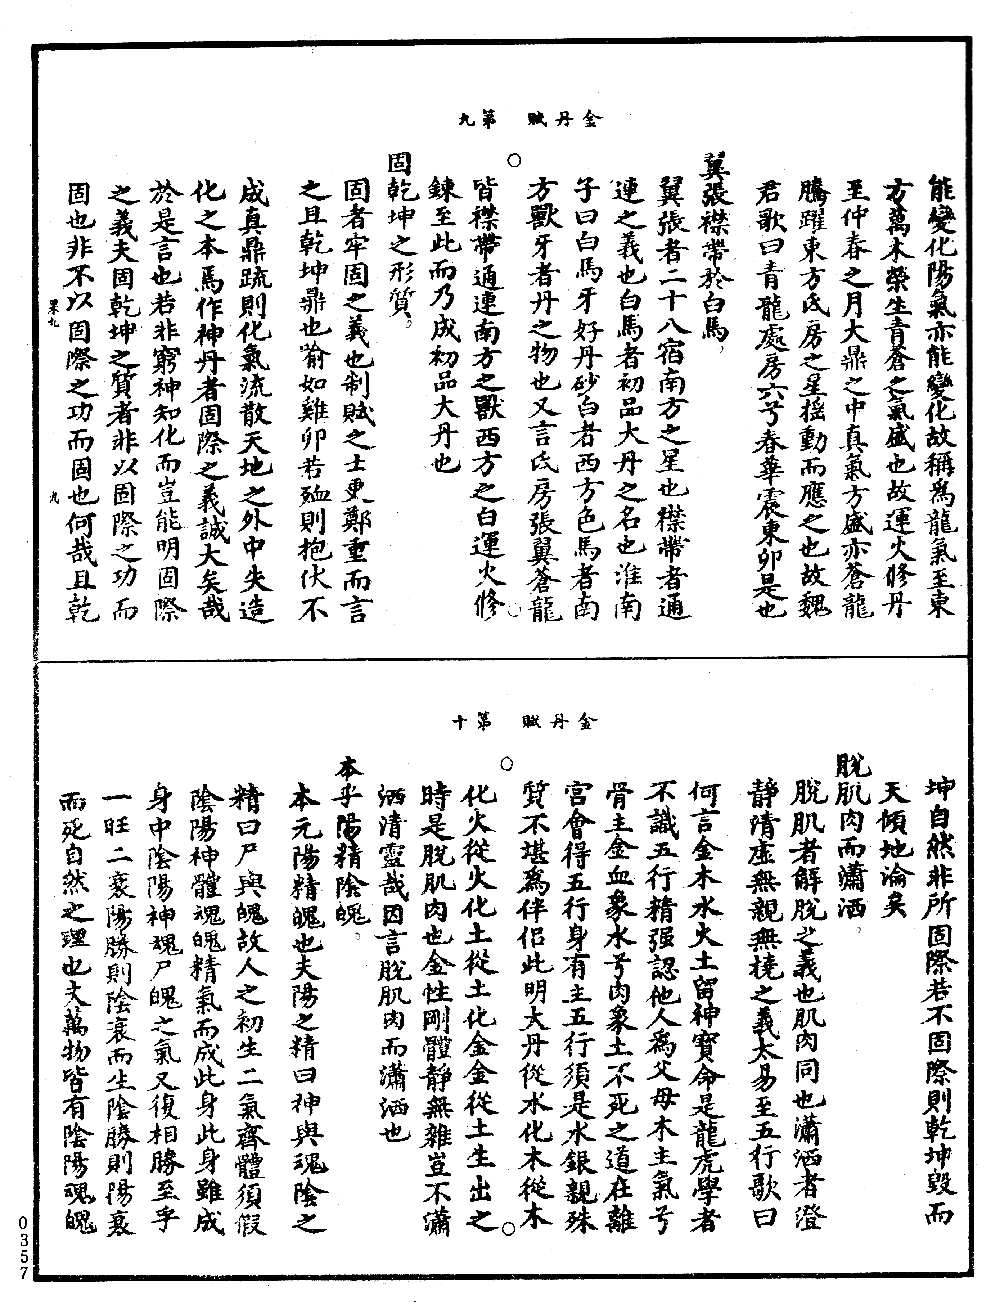 金丹賦　第九
能變化陽氣亦能變化故稱為龍氣至東
方萬木榮生青蒼之氣盛也故運火修丹
至仲春之月大鼎之中真氣方盛亦蒼龍
騰躍東方氐房之星搖動而應之也故魏
君歌曰青龍處房六兮春華震東卯是也
翼張襟帶於白馬
翼張者二十八宿南方之星也襟帶者通
連之義也白馬者初品大丹之名也淮南
子曰白馬牙好丹砂白者西方色馬者南
方獸牙者丹之物也又言氐房張翼蒼龍
皆襟帶通連南方之獸西方之白運火修
鍊至此而乃成初品大丹也
固乾坤之形質
固者牢固之義也制賦之士更鄭重而言
之且乾坤鼎也喻如雞卵若殈則抱伏不
成真鼎疏則化氣流散天地之外中失造
化之本馬作神丹者固際之義誠大矣哉
於是言也若非窮神知化而豈能明固際
之義夫固乾坤之質者非以固際之功而
固也非不以固際之功而固也何哉且乾
果九
九
金丹賦　第十
坤自然非所固際若不固際則乾坤毀而
天傾地淪矣
脫肌肉而瀟洒
脫肌者解脫之義也肌肉同也瀟洒者澄
靜隋虛無親無撓之義太易至五行歌曰
何言金木水火土留神寶命是龍虎學者
不識五行精强認他人為父母木主氣兮
骨主金血象水兮肉象土不死之道在離
宮會得五行身有主五行須是水銀親殊
質不堪為伴侶此明大丹從水化木從木
化火從火化土從土化金金從土生出之
時是脫肌肉也金性剛體靜無雜豈不瀟
洒清靈哉因言脫肌肉而瀟洒也
本乎陽精陰魄
本元陽精魄也夫陽之精曰神與魂陰之
精曰尸與魄故人之初生二氣齊體須假
陰陽神體魂魄精氣而成此身此身雖成
身中陰陽神魂尸魄之氣又復相勝至乎
一旺二衰陽勝則陰衰而生陰勝則陽衰
而死自然之理也夫萬物皆有陰陽魂魄
0357